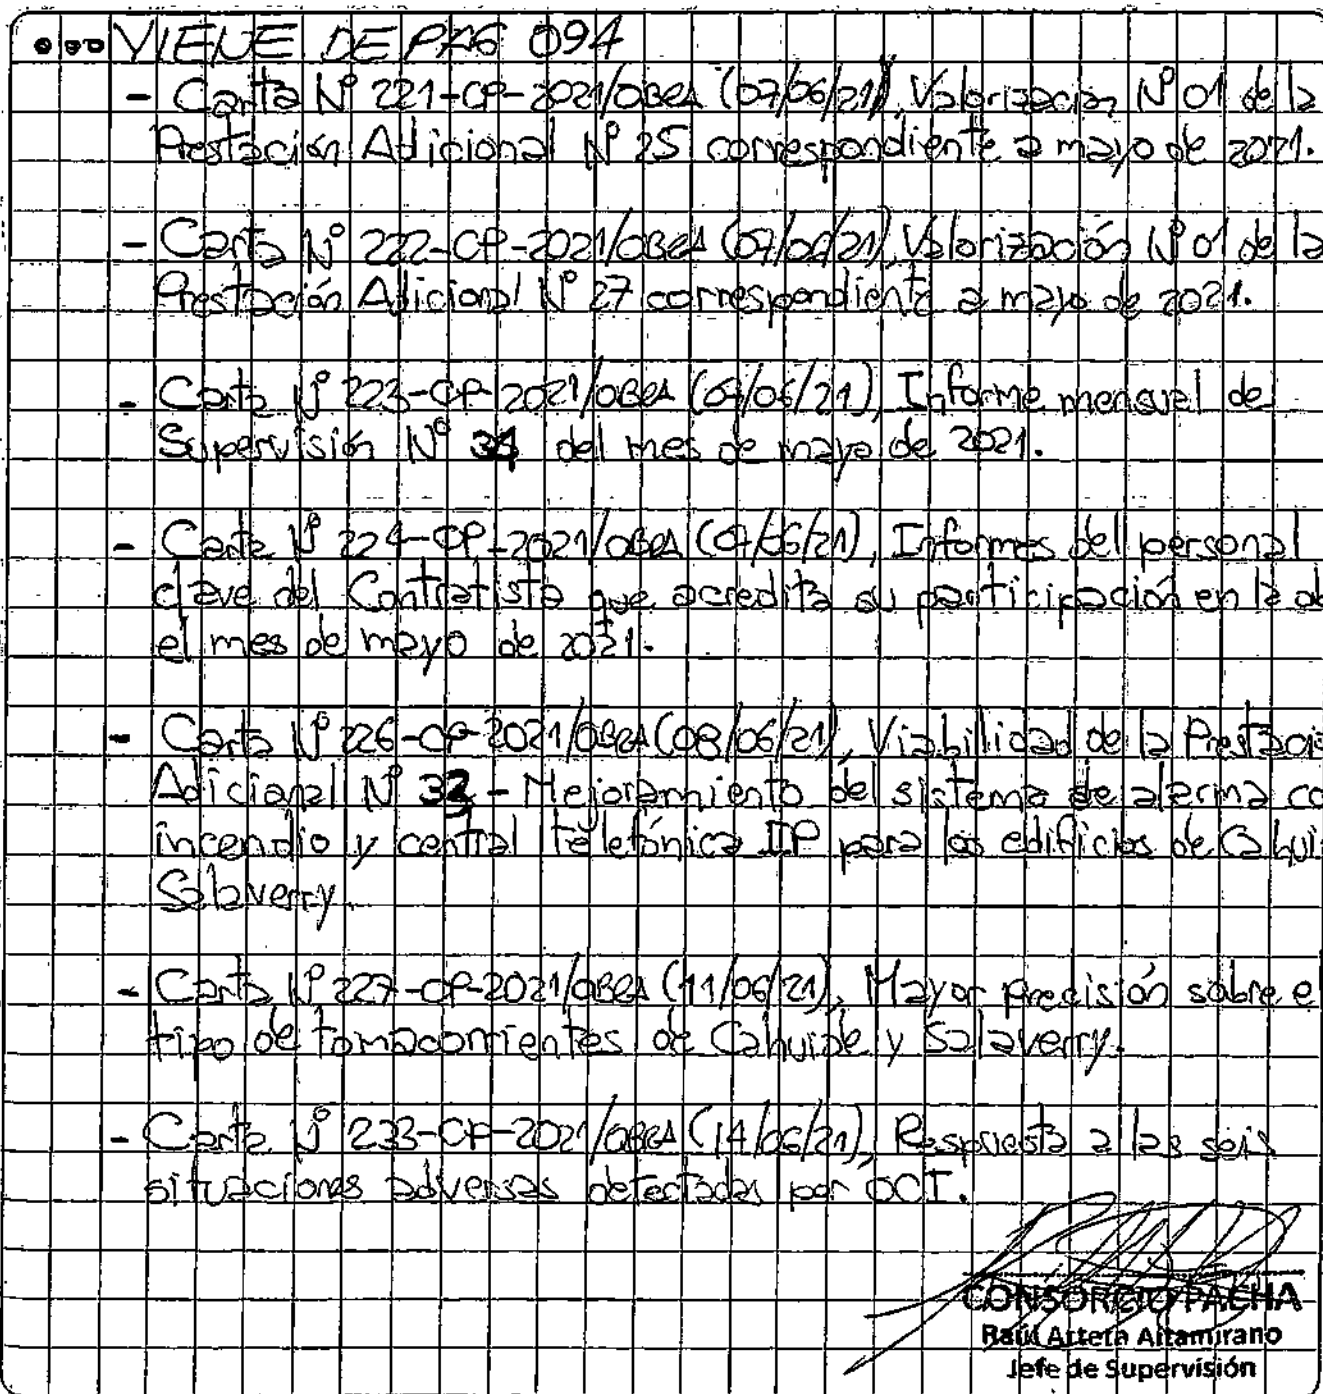 ... VIENE DE PÁG 094
- Carta Nº 221-CP-2021/OBRA (07/06/21), Valorización Nº 01 de la
Prestación Adicional Nº 25 correspondiente a mayo de 2021.
- Carta Nº 222-CP-2021/OBRA (07/06/21), Valorización Nº 01 de la
Prestación Adicional Nº 27 correspondiente a mayo de 2021.
- Carta Nº 223-CP-2021/OBRA (07/06/21), Informe mensual de
Supervisión Nº 34 del mes de mayo de 2021.
- Carta Nº 224-CP-2021/OBRA (07/06/21), Informes del personal
clave del Contratista que acredita su participación en la ob
el mes de mayo de 2021.
- Carta Nº 226-CP-2021/OBRA (08/06/21), Viabilidad de la Prestació
Adicional Nº 32 - Mejoramiento del sistema de alarma co
incendio y central telefónica IP para los edificios de Cahui
Salaverry.
- Carta Nº 227-CP-2021/OBRA (11/06/21), Mayor precisión sobre el
tipo de tomacorrientes de Cahuide y Salaverry.
- Carta Nº 233-CP-2021/OBRA (14/06/21), Respuesta a las seis
situaciones adversas detectadas por OCI.
CONSORCIO PACHA
Raúl Arteta Altamirano
Jefe de Supervisión